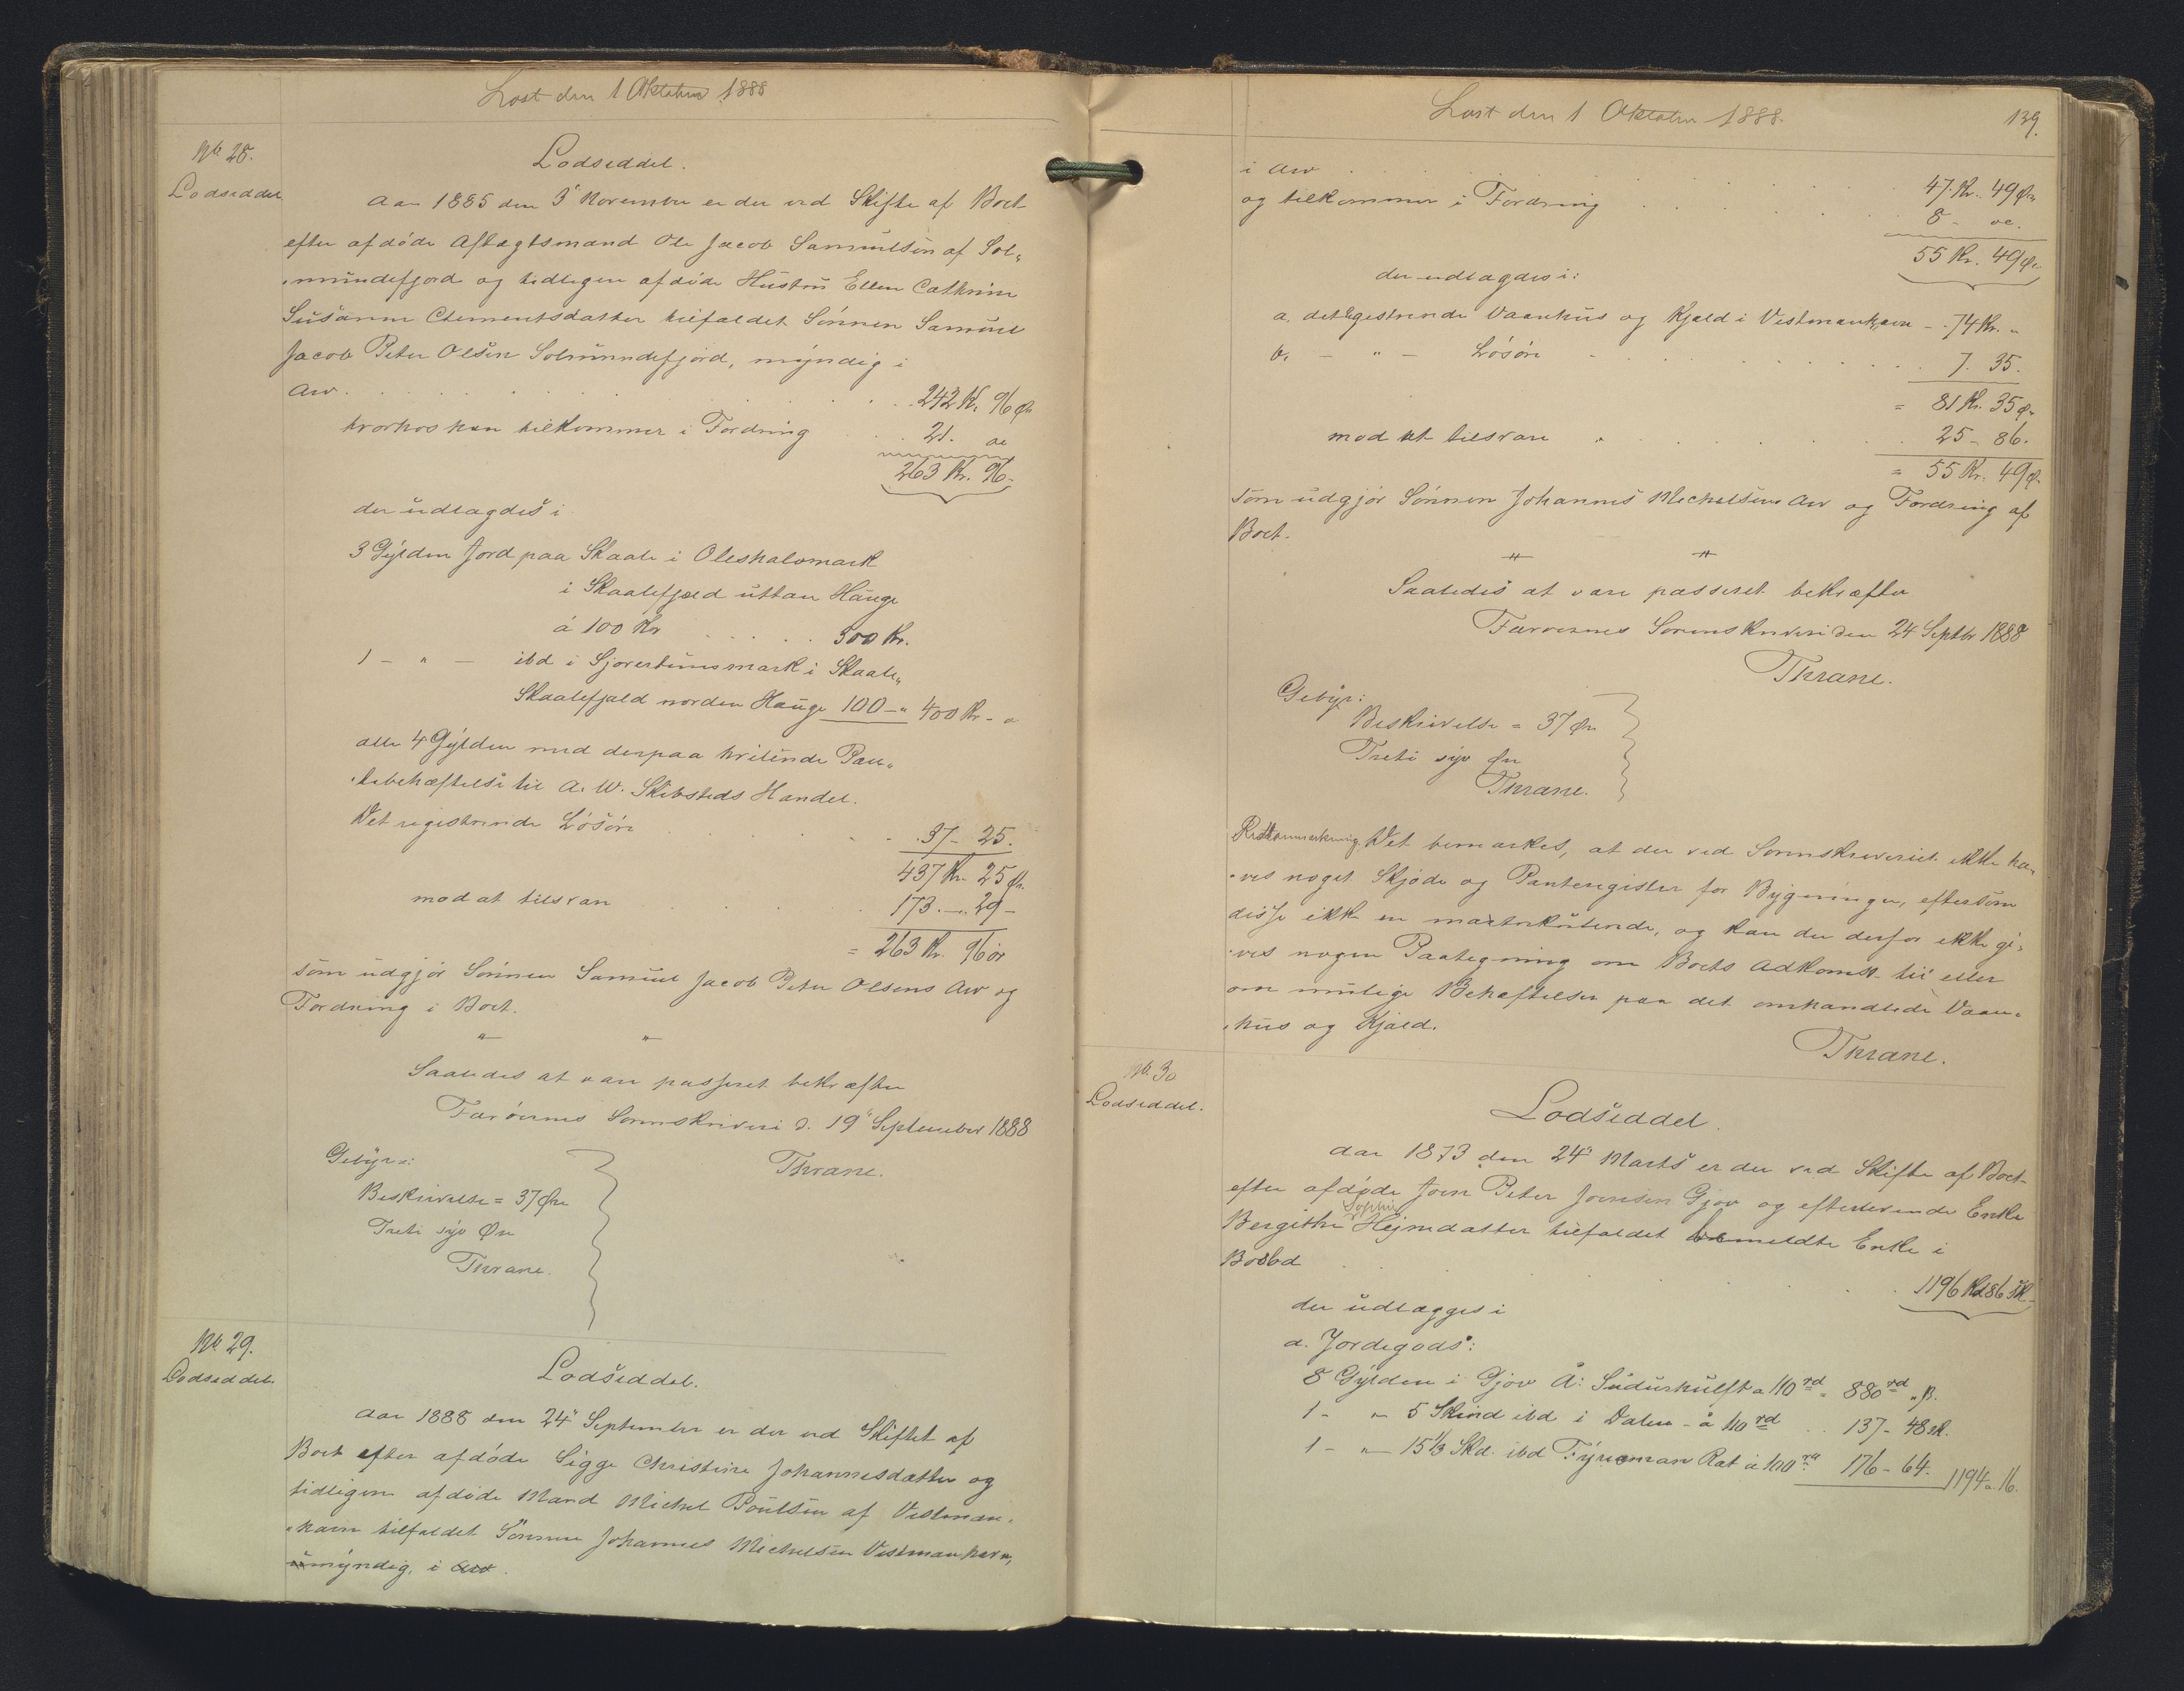 Læst den 1 Oktober 1888
No 28.
Lodseddel
Lodseddel.
Aar 1885 den 3' November er der ved Skifte af Boet
efter afdöde Aftægtsmand Ole Jacob Samuelsen af Sol„
„mundefjord og tidligere afdöde Hustru Ellen Cathrine
Susanne Clementsdatter tilfaldet Sönnen Samuel
Jacob Peter Olsen Solmundefjord, myndig i
Arv . . . . . 242 Kr. 96 Ør
hvorhos han tilkommer i Fordring . . 21. oe
263 Kr. 96.
der udlagdes i
3 Gylden Jord paa Skaale i Oleskalomark
i Skaalefjæld uttan Hauge
á 100 Kr . . . . 300 Kr.
1 - " - ibd i Sjovertunsmark i Skaale„
Skaalefjæld norden Hauge 100 - " 400 Kr - "
alle 4 Gylden med derpaa hvilende Pan„
„tebehæftelse til A. W. Skibsteds Handel.
Det registrerede Lösöre . . . . 37 - 25.
437 Kr 25 Ør.
mod at tilsvare . . . 173. - 29 -
= 263 Kr. 96 ör
som udgjör Sönnen Samuel Jacob Peter Olsens Arv og
Fordring i Boet.
" "
Saaledes at være passeret bekræfter
Færöernes Sorenskriveri d. 19' September 1888
Thrane.
Gebyr:
Beskrivelse = 37 Øre
Treti syv Øre
Thrane.
No 29.
Lodseddel.
Lodseddel.
Aar 1888 den 24' September er der ved Skiftet af
Boet efter afdöde Sigge Christine Johannesdatter og
tidligere afdöde Mand Michel Poulsen af Vestman„
„havn tilfaldet Sönnen Johannes Michelsen Vestmanhavn,
umyndig, i Arv.
Læst den 1 Oktober 1888.
139.
i Arv . . . . . 47. Kr. 49 Ør.
og tilkommer i Fordring . . . . 8 - oe.
55 Kr. 49 Ør
der udlagdes i:
a. det registrerede Vaanhus og Kjæld i Vestmanhavn - 74 Kr. "
b. - " - Lösöre . . . . 7. 35.
= 81 Kr. 35 Ør
mod at tilsvare . . . . 25 - 86.
= 55 Kr. 49 Ø.
som udgjör Sönnen Johannes Michelsens Arv og Fordring af
Boet.
" "
Saaledes at være passeret bekræfter
Færoernes Sorenskriveri den 24 Septbr 1888
Thrane.
Gebyr:
Beskrivelse = 37 Øre
Treti syv Øre
Thrane.
Rettanmærkning. Det bemærkes, at der ved Sorenskriveriet ikke ha„
„ves noget Skjöde og Panteregister for Bygninger, eftersom
disse ikke er matrikulerede, og kan der derfor ikke gi„
„ves nogen Paategning om Boets Adkomst til eller
om mulige Behæftelser paa det omhandlede Vaan„
„hus og Kjæld.
Thrane.
No 30
Lodseddel.
Lodseddel.
Aar 1873 den 24' Marts er der ved Skifte af Boet
efter afdöde Joen Peter Joensen Gjov og efterlevende Enke
Bergithe Sophie Hejnedatter tilfaldet bemeldte Enke i
Boslod . . . . 1196 Rd 86 sk
der udlægges i
a. Jordegods:
8 Gylden i Gjov Á: Sudurhulft a 110 rd = 880 rd " ß.
1 - " 5 Skind ibd i Dalen - à 110 rd . . 137 - 48 sk.
1 - " - 15 1/3 Skd. ibd Rat à 110 rd 176 - 64. 1194 " 16.